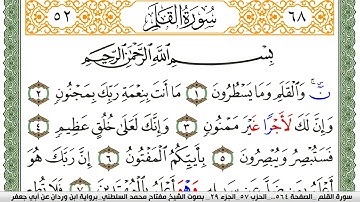 ٦٨ سُورَةُ القَلَمِ ٥٢
بِسْمِ اللَّهِ الرَّحْمَٰنِ الرَّحِيمِ
نٓ وَالْقَلَمِ وَمَا يَسْطُرُونَ ١ مَا أَنتَ بِنِعْمَةِ رَبِّكَ بِمَجْنُونٍ ٢
وَإِنَّ لَكَ لَأَجْرًا غَيْرَ مَمْنُونٍ ٣ وَإِنَّكَ لَعَلَىٰ خُلُقٍ عَظِيمٍ ٤
فَسَتُبْصِرُ وَيُبْصِرُونَ ٥ بِأَييِّكُمُ الْمَفْتُونُ ٦ إِنَّ رَبَّكَ هُوَ
أَعْلَمُ بِمَن ضَلَّ عَن سَبِيلِهِ وَهْوَ أَعْلَمُ بِالْمُهْتَدِينَ ٧ فَلَا تُطِعِ
سورة القلم الصفحة ٥٦٤ ... الحزب ٥٧ الجزء ٢٩ .. بصوت الشيخ مفتاح محمد السلطني برواية ابن وردان عن أبي جعفر